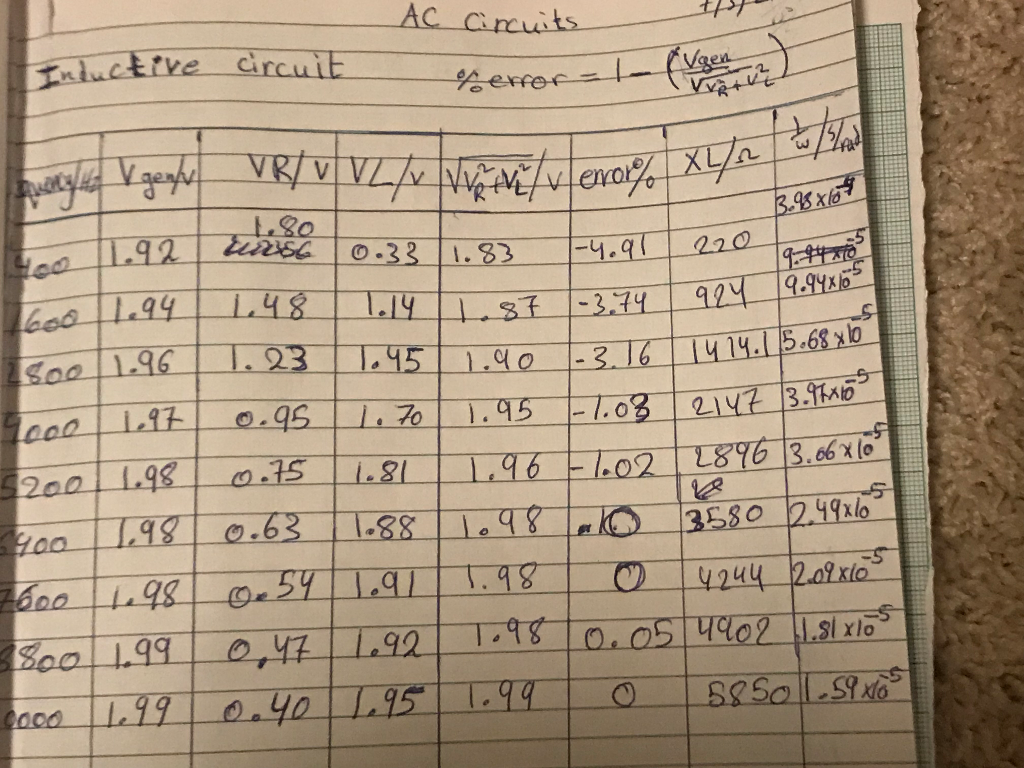 AC Circuits
Inductive circuit %error = 1 - (Vgen / √V²R + V²L)
V gen/v VR/v VL/v √V²R+V²L/v error% XL/Ω 1/ω / s/rad
400 1.92 1.80 0.33 1.83 -4.91 220 3.98x10⁻⁴
9.94x10⁻⁵
1600 1.94 1.48 1.14 1.87 -3.74 924 9.94x10⁻⁵
2800 1.96 1.23 1.45 1.90 -3.16 1414.1 5.68x10⁻⁵
4000 1.97 0.95 1.70 1.95 -1.03 2147 3.97x10⁻⁵
5200 1.98 0.75 1.81 1.96 -1.02 2896 3.06x10⁻⁵
6400 1.98 0.63 1.88 1.98 0 3580 2.49x10⁻⁵
7600 1.98 0.54 1.91 1.98 0 4244 2.09x10⁻⁵
8800 1.99 0.47 1.92 1.98 0.05 4902 1.81x10⁻⁵
0000 1.99 0.40 1.95 1.99 0 5850 1.59x10⁻⁵